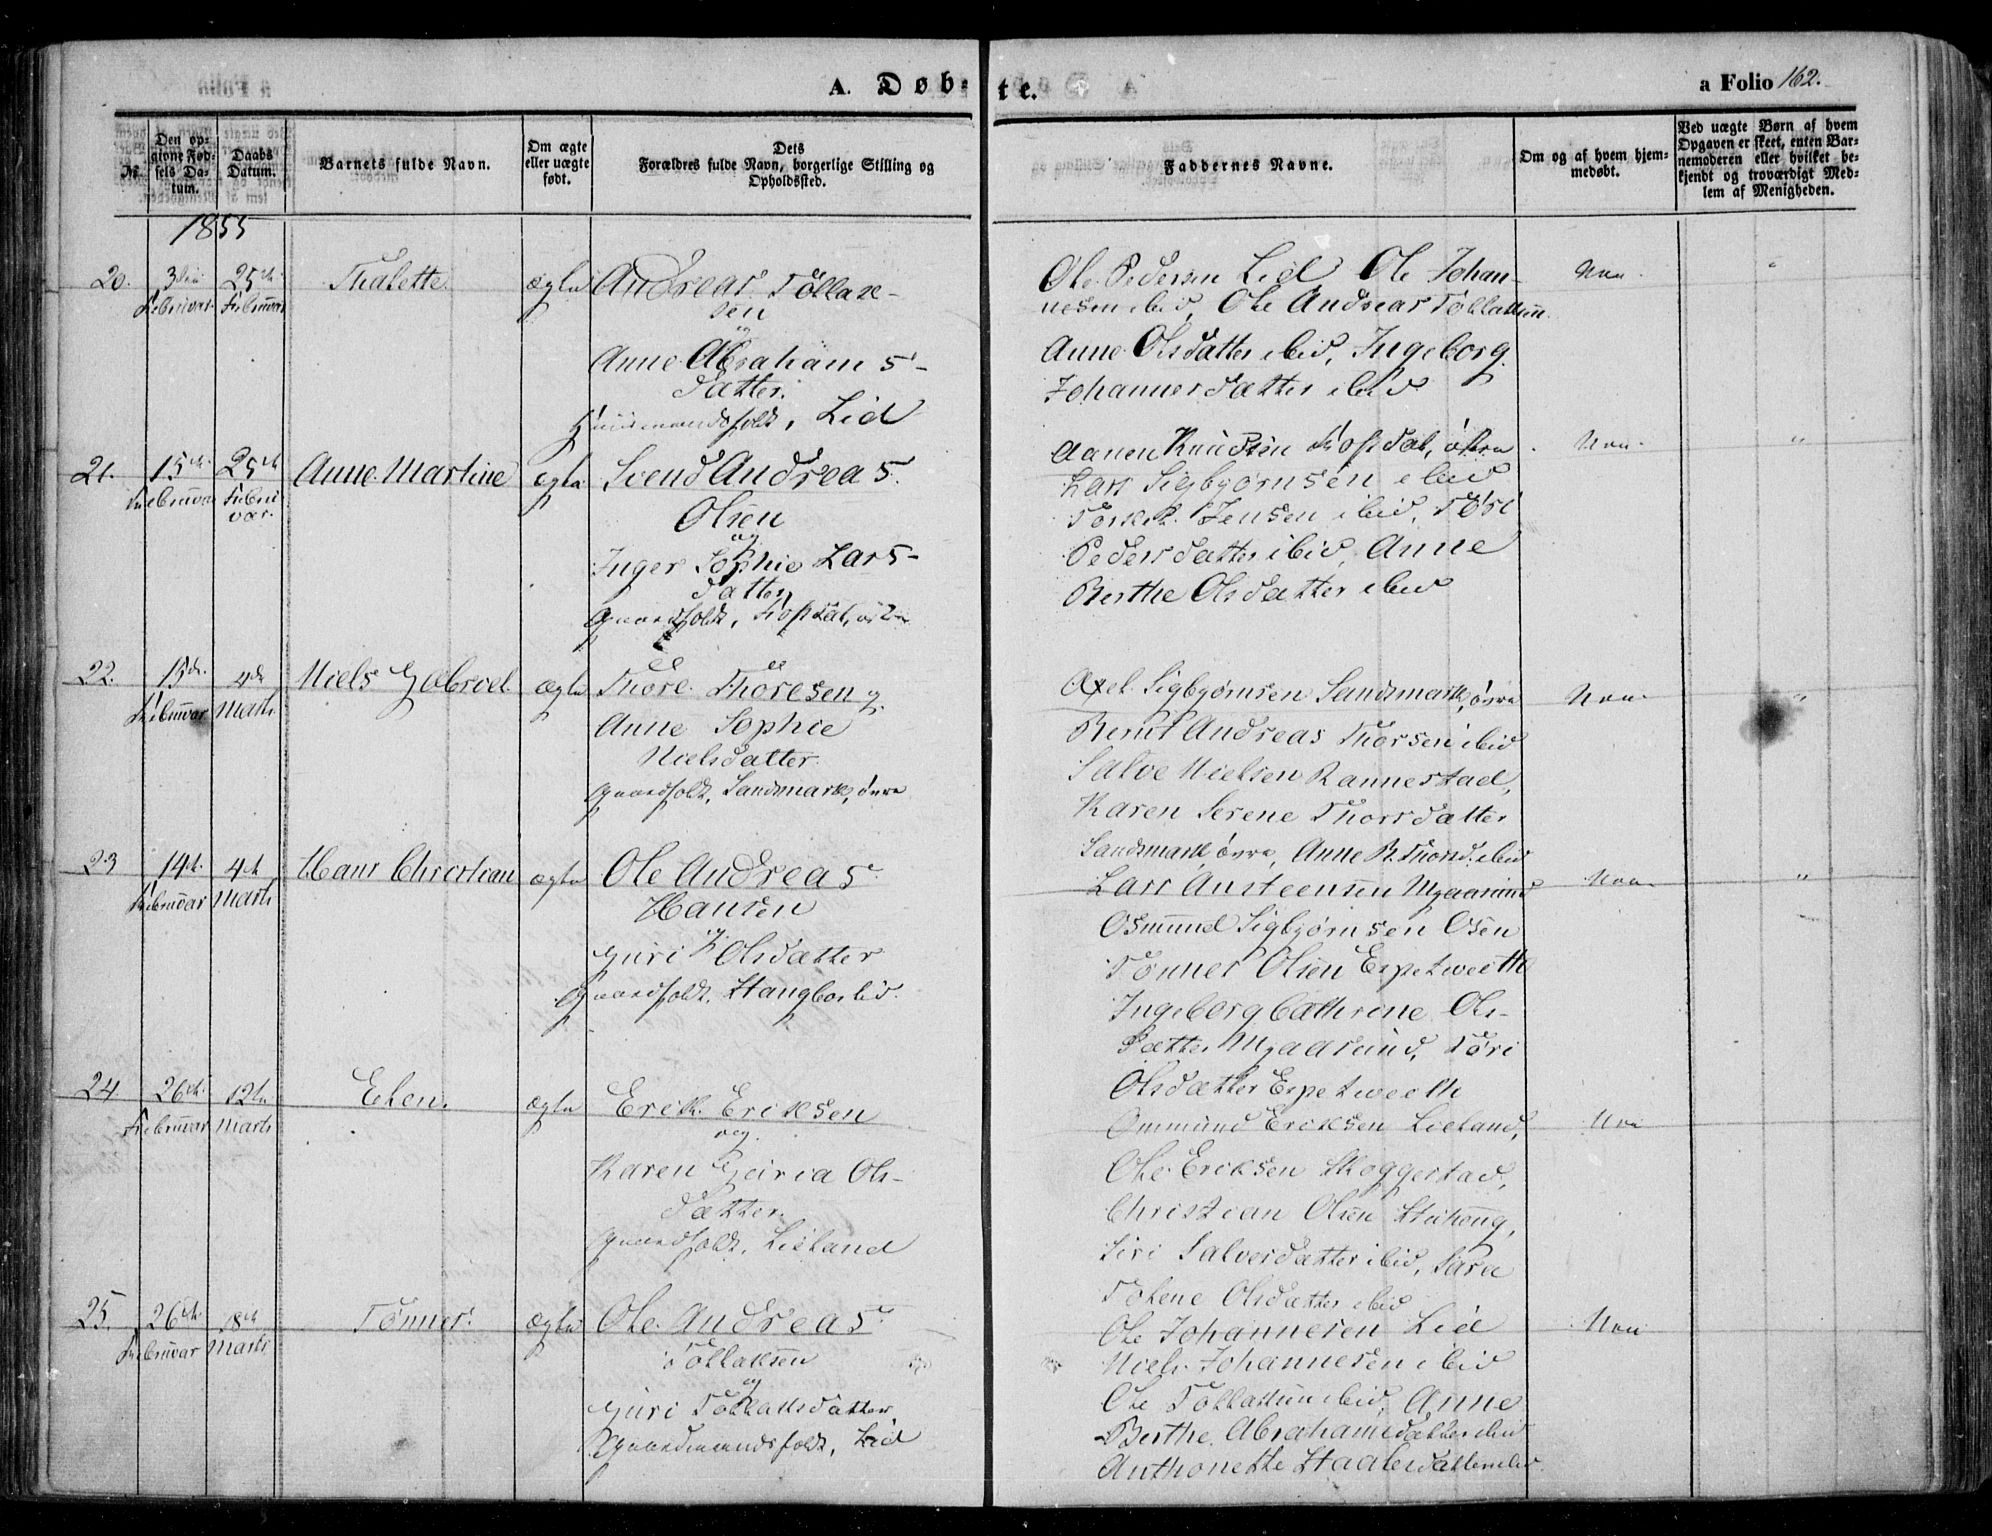 A. Døbte.
a Folio 162.
No.
Den opgivne Fødsels Datum.
Daabs Datum.
Barnets fulde Navn.
Om ægte eller uægte født.
Dets Forældres fulde Navn, borgerlige Stilling og Opholdssted.
Faddernes Navne.
Om og af hvem hjemmedøbt.
Ved uægte Børn af hvem Opgaven er skeet, enten Barnemoderen eller hvilket bekjendt og troværdigt Medlem af Menigheden.
1855
20. 3die Februar 25de Februar Thalette ægte
Andreas Tollak-
sen
og
Anne Abrahams-
datter.
Huusmandsfolk, Lid
Ole Pedersen Lid Ole Johan-
nesen ibid, Ole Andreas Tollaksen
Anne Olsdatter ibid, Ingeborg
Johannesdatter ibid
21. 15de Februar 25de Februar Anne Martine ægte
Svend Andreas
Olsen
og
Inger Sophie Lars-
datter
Gaardfolk,
Aanen Knudsen
Lars Sigbjørnsen ibid
Jensen ibid, Tøri
Pedersdatter ibid, Anne
Berthe Olsdatter ibid
22. 15de Februar 4de Marts Niels Gabriel ægte
Thore Thoresen og
Anne Sophie
Nielsdatter
Gaardfolk, Sandsmark, øvre
Axel Sigbjørnsen Sandsmark, øvre
Bernt Andreas Thorsen ibid
Salve Nielsen Rannestad,
Karen Serene Thorsdatter
Sandsmark, øvre, Anne B. Thorsd. ibid
23 14de Februar 4de Marts Hans Christian ægte
Ole Andreas
Hansen
og
Guri Olsdatter
Gaardfolk, Stangborlid.
Lars Austeensen Mgaarund
Osmund Sigbjørnsen Osen
Tønnes Olsen Espetweeth
Ingeborg Cathrine Ols-
datter Mgaarund, Tøri
Olsdatter Espetweeth
24. 26de Februar 12te Marts Elen. ægte
Erik Eriksen
og
Karen Guria Ols-
datter.
Gaardfolk, Lieland
Ommund Eriksen Lieland,
Ole Eriksen Skoggestad,
Christian Olsen
Siri Salvesdatter ibid, Sara
Tolene Olsdatter ibid
25. 26de Februar 18de Marts Tønnes. ægte
Ole Andreas
Tollaksen
og
Guri Tollaksdatter
Gaardmandsfolk, Lid
Ole Johannesen Lid
Niels Johannesen ibid
Ole Tollaksen ibid, Anne
Berthe Abrahamsdatter ibid
Anthonette ibid